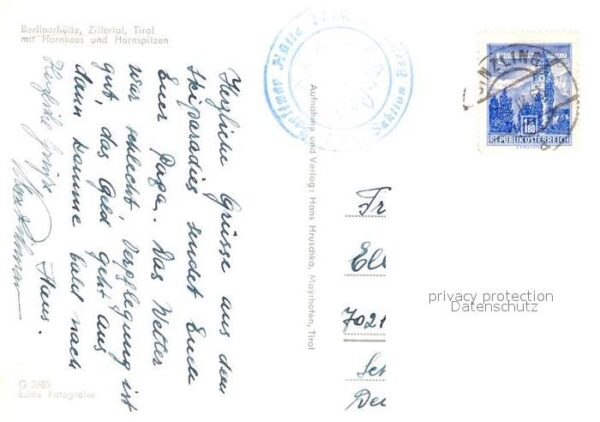 Berlinerhütte, Zillertal, Tirol
mit Hornkees und Hornspitzen
Herzliche Grüsse aus dem
Skiparadies sendet Euch
Euer Papa. Das Wetter
war schlecht, Verpflegung ist
gut, das Geld geht aus
dann komme bald nach
Haus.
Herzliche Grüsse
G 3605
Echte Fotografie
Aufnahme und Verlag: Hans Hruschka, Mayrhofen, Tirol
Berliner Hütte
Sektion
GINZLING
1.80
REPUBLIK ÖSTERREICH
Fr
Ell
7021
Sch
Deu
privacy protection
Datenschutz